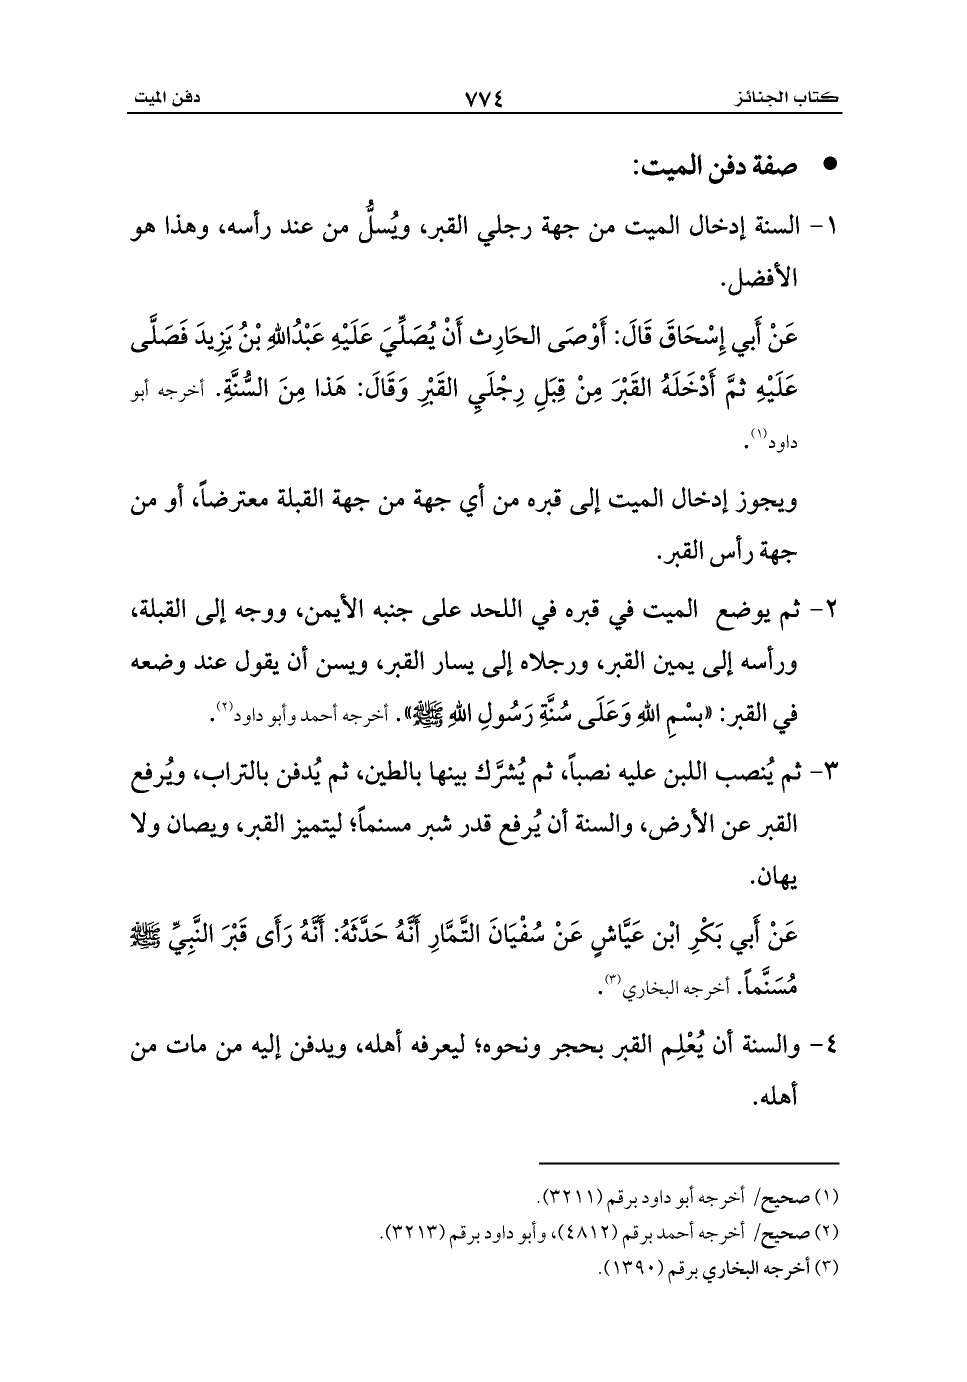 كتاب الجنائز ٧٧٤ دفن الميت
• صفة دفن الميت:
١- السنة إدخال الميت من جهة رجلي القبر، ويُسلُّ من عند رأسه، وهذا هو
الأفضل.
عَنْ أَبي إِسْحَاقَ قَالَ: أَوْصَى الحَارِث أَنْ يُصَلِّيَ عَلَيْهِ عَبْدُاللهِ بْنُ يَزِيدَ فَصَلَّى
عَلَيْهِ ثمَّ أَدْخَلَهُ القَبْرَ مِنْ قِبَلِ رِجْلَيِ القَبْرِ وَقَالَ: هَذا مِنَ السُّنَّةِ. أخرجه أبو
داود(١).
ويجوز إدخال الميت إلى قبره من أي جهة من جهة القبلة معترضاً، أو من
جهة رأس القبر.
٢- ثم يوضع الميت في قبره في اللحد على جنبه الأيمن، ووجه إلى القبلة،
ورأسه إلى يمين القبر، ورجلاه إلى يسار القبر، ويسن أن يقول عند وضعه
في القبر: «بسْمِ اللهِ وَعَلَى سُنَّةِ رَسُولِ اللهِ ﷺ». أخرجه أحمد وأبو داود(٢).
٣- ثم يُنصب اللبن عليه نصباً، ثم يُشرَّك بينها بالطين، ثم يُدفن بالتراب، ويُرفع
القبر عن الأرض، والسنة أن يُرفع قدر شبر مسنماً؛ ليتميز القبر، ويصان ولا
يهان.
عَنْ أَبي بَكْرِ ابْن عَيَّاشٍ عَنْ سُفْيَانَ التَّمَّارِ أَنَّهُ حَدَّثَهُ: أَنَّهُ رَأَى قَبْرَ النَّبِيِّ ﷺ
مُسَنَّماً. أخرجه البخاري(٣).
٤- والسنة أن يُعْلِم القبر بحجر ونحوه؛ ليعرفه أهله، ويدفن إليه من مات من
أهله.
(١) صحيح/ أخرجه أبو داود برقم (٣٢١١).
(٢) صحيح/ أخرجه أحمد برقم (٤٨١٢)، وأبو داود برقم (٣٢١٣).
(٣) أخرجه البخاري برقم (١٣٩٠).